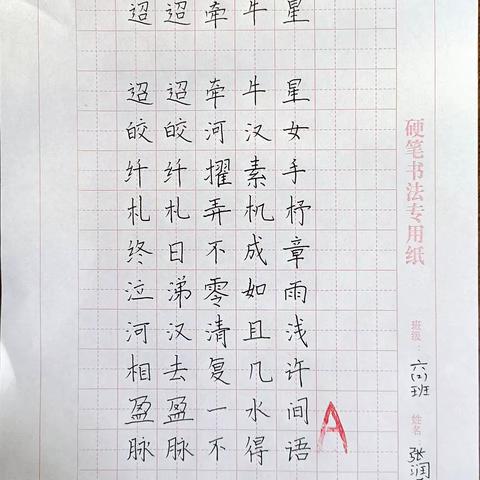 迢迢牵牛星
迢迢牵牛星
皎皎河汉女
纤纤擢素手
札札弄机杼
终日不成章
泣涕零如雨
河汉清且浅
相去复几许
盈盈一水间
脉脉不得语
A
硬笔书法专用纸
班级
六(二)班
姓名
张润